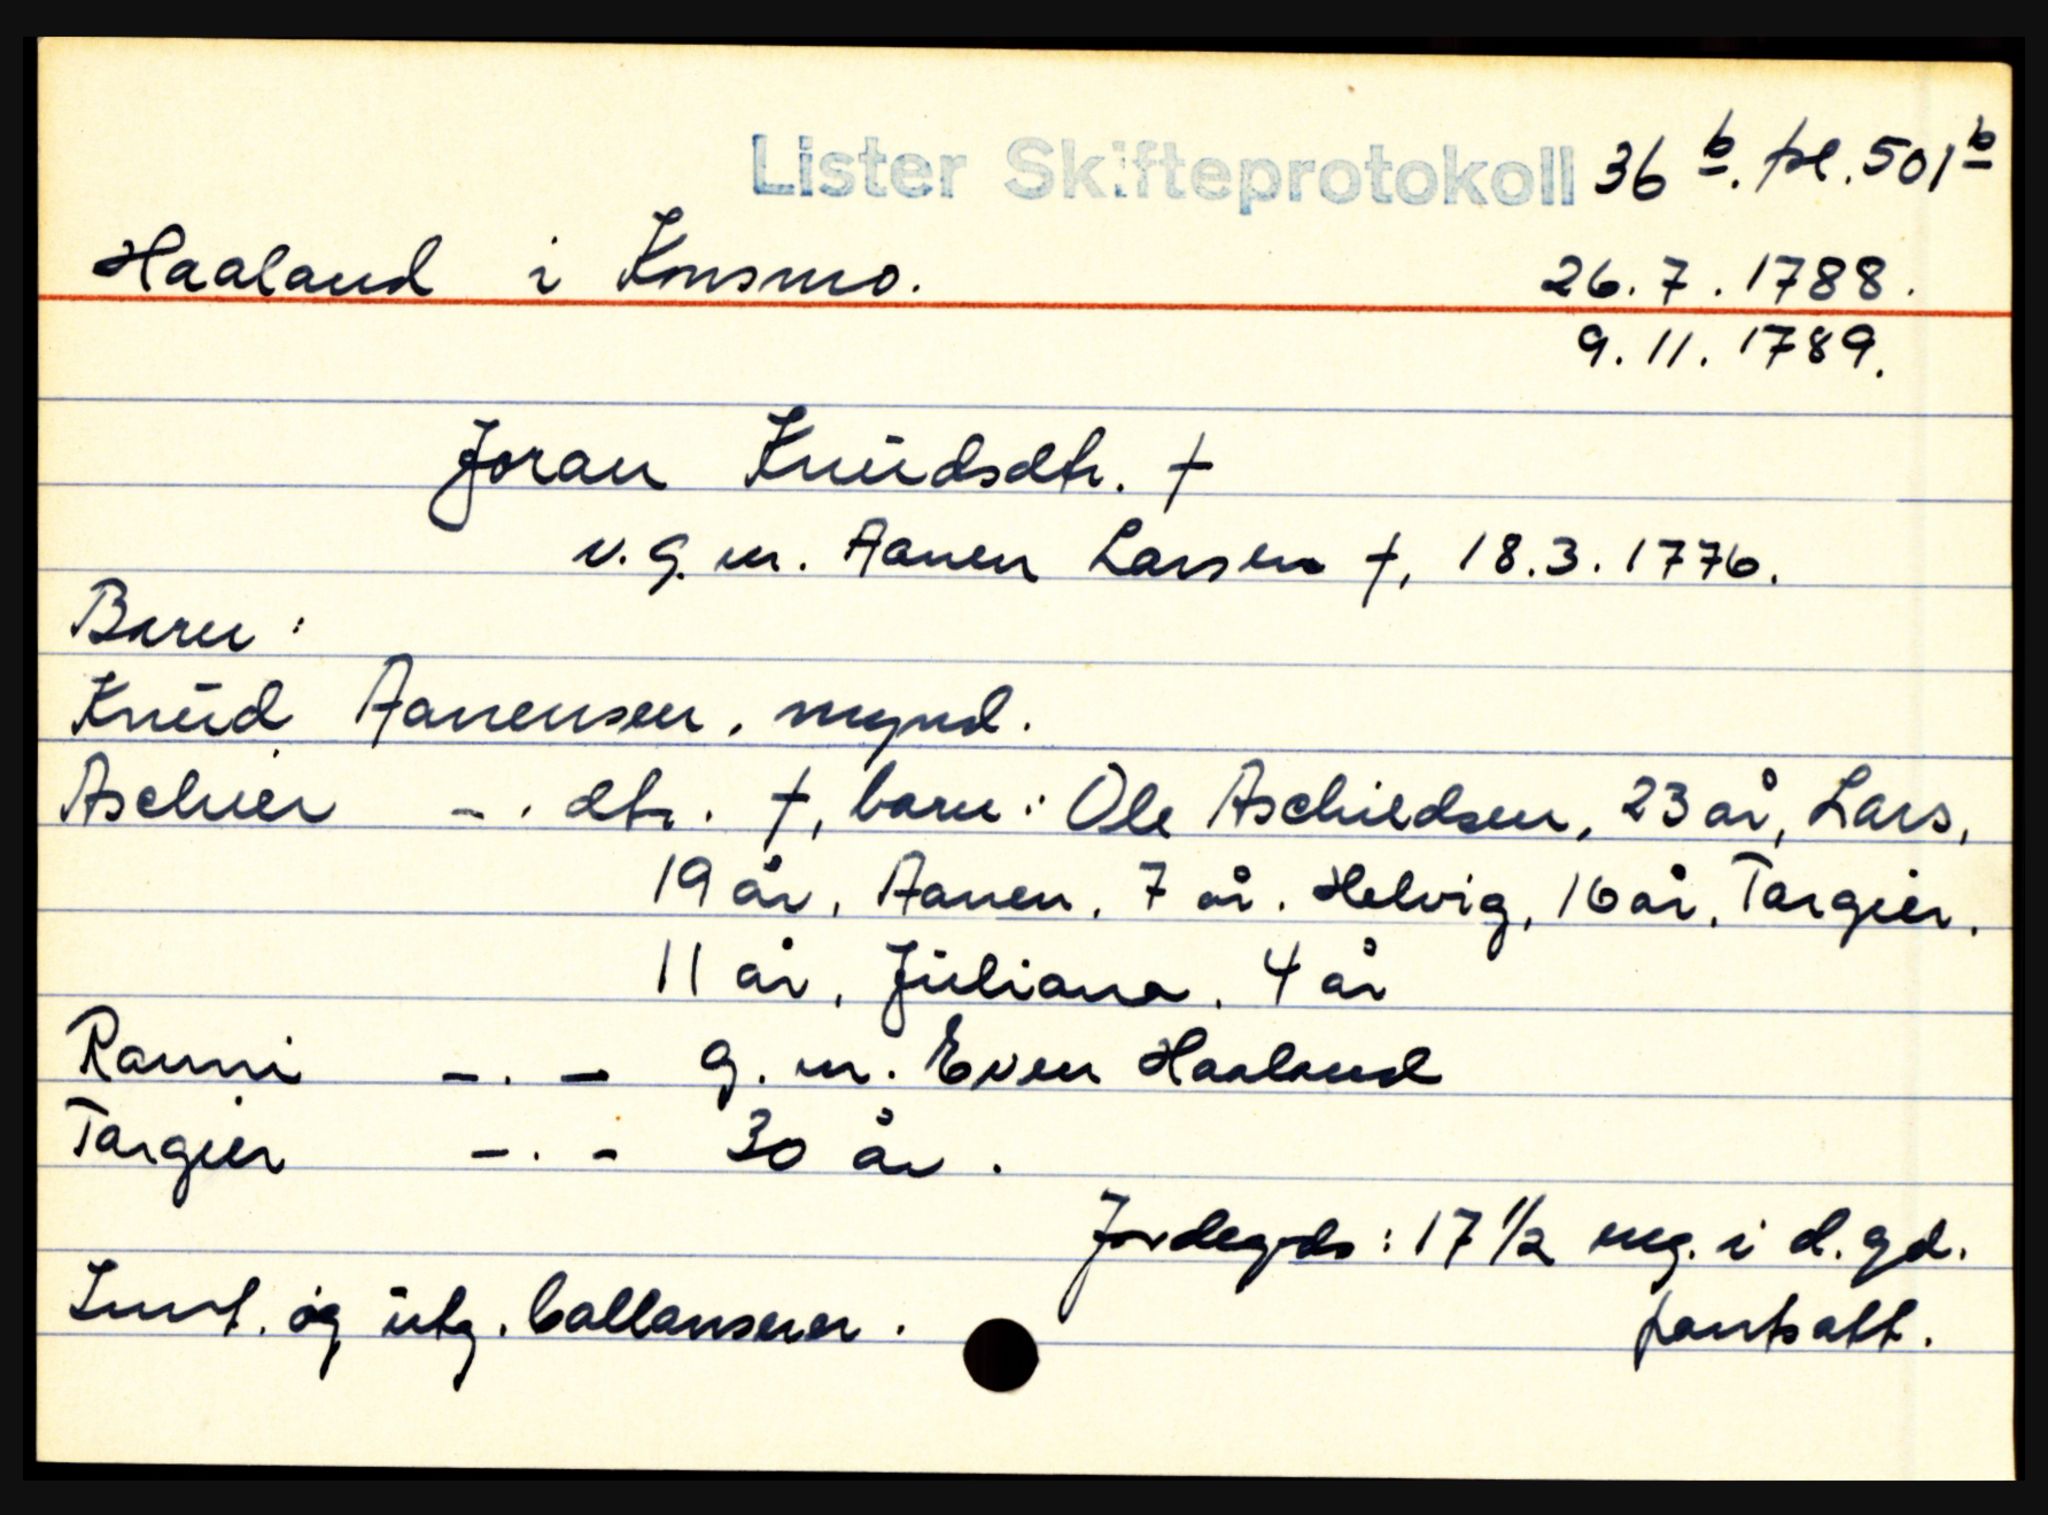 Lister Skifteprotokoll 36 b. pl. 501 b
Haaland i Konsmo. 26.7.1788.
9.11.1789.
Joran Knudsdtr. †
v. g. m. Aanen Larsen †, 18.3.1776.
Barn:
Knud Aanensen, mynd.
Aschier - . dtr. †, barn: Ole Aschildsen, 23 år, Lars,
19 år, Aanen, 7 år, Helvig, 16 år, Targier,
11 år, Juliana, 4 år
Ranni - . - g. m. Even Haaland
Targier - . - 30 år.
Jordegods: 17 1/2 eng. i d. gd.
og utg. ballanserer. pantsatt.